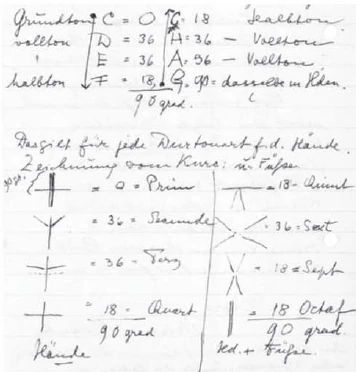 Grundton C = 0 G = 18 Halbton
vollton D = 36 A = 36 — Vollton
" E = 36 A = 36 — Vollton
halbton F = 18 G = 90 = dasselbe in Hden.
90 grad.
Das gilt für jede Durtonart f. d. Hände.
Zeichnung vom Kurs: u. Füße
= 0 = Prim = 18 = Quint
= 36 = Secunde = 36 = Sext
= 36 = Terz = 18 = Sept
= 18 = Quart = 18 Octaf
90 grad 90 grad.
Hände Hd. + Füße.